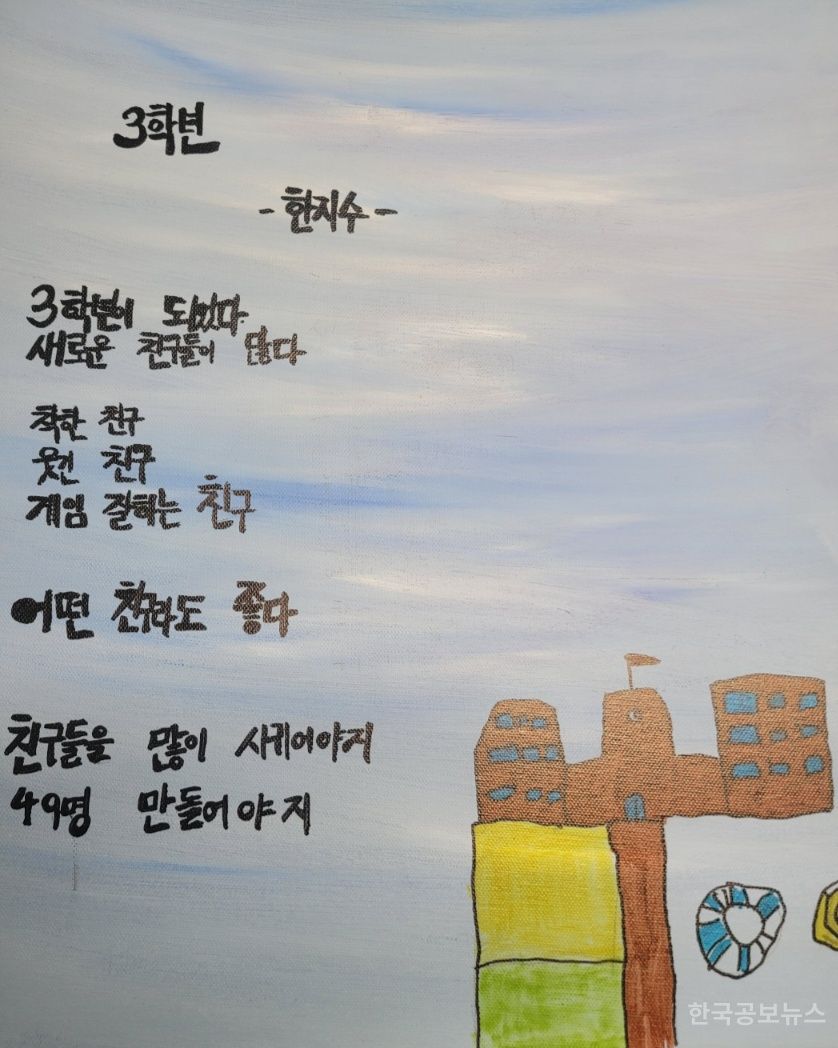 3학년
- 한지수 -
3학년이 되었다.
새로운 친구들이 많다
착한 친구
웃긴 친구
게임 잘하는 친구
어떤 친구라도 좋다
친구들을 많이 사귀어야지
49명 만들어야지
한국공보뉴스